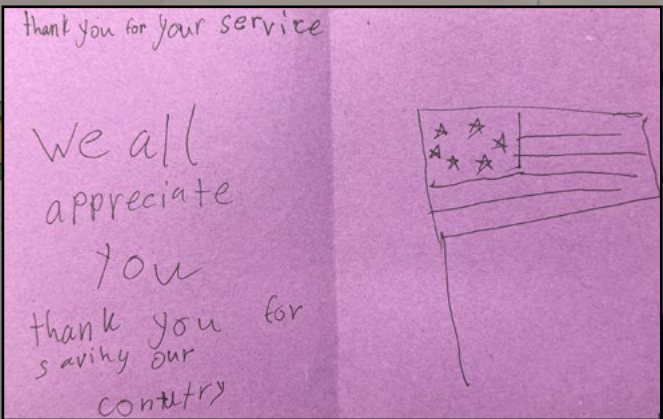 thank you for your service
We all
appreciate
you
thank you for
saving our
contutry